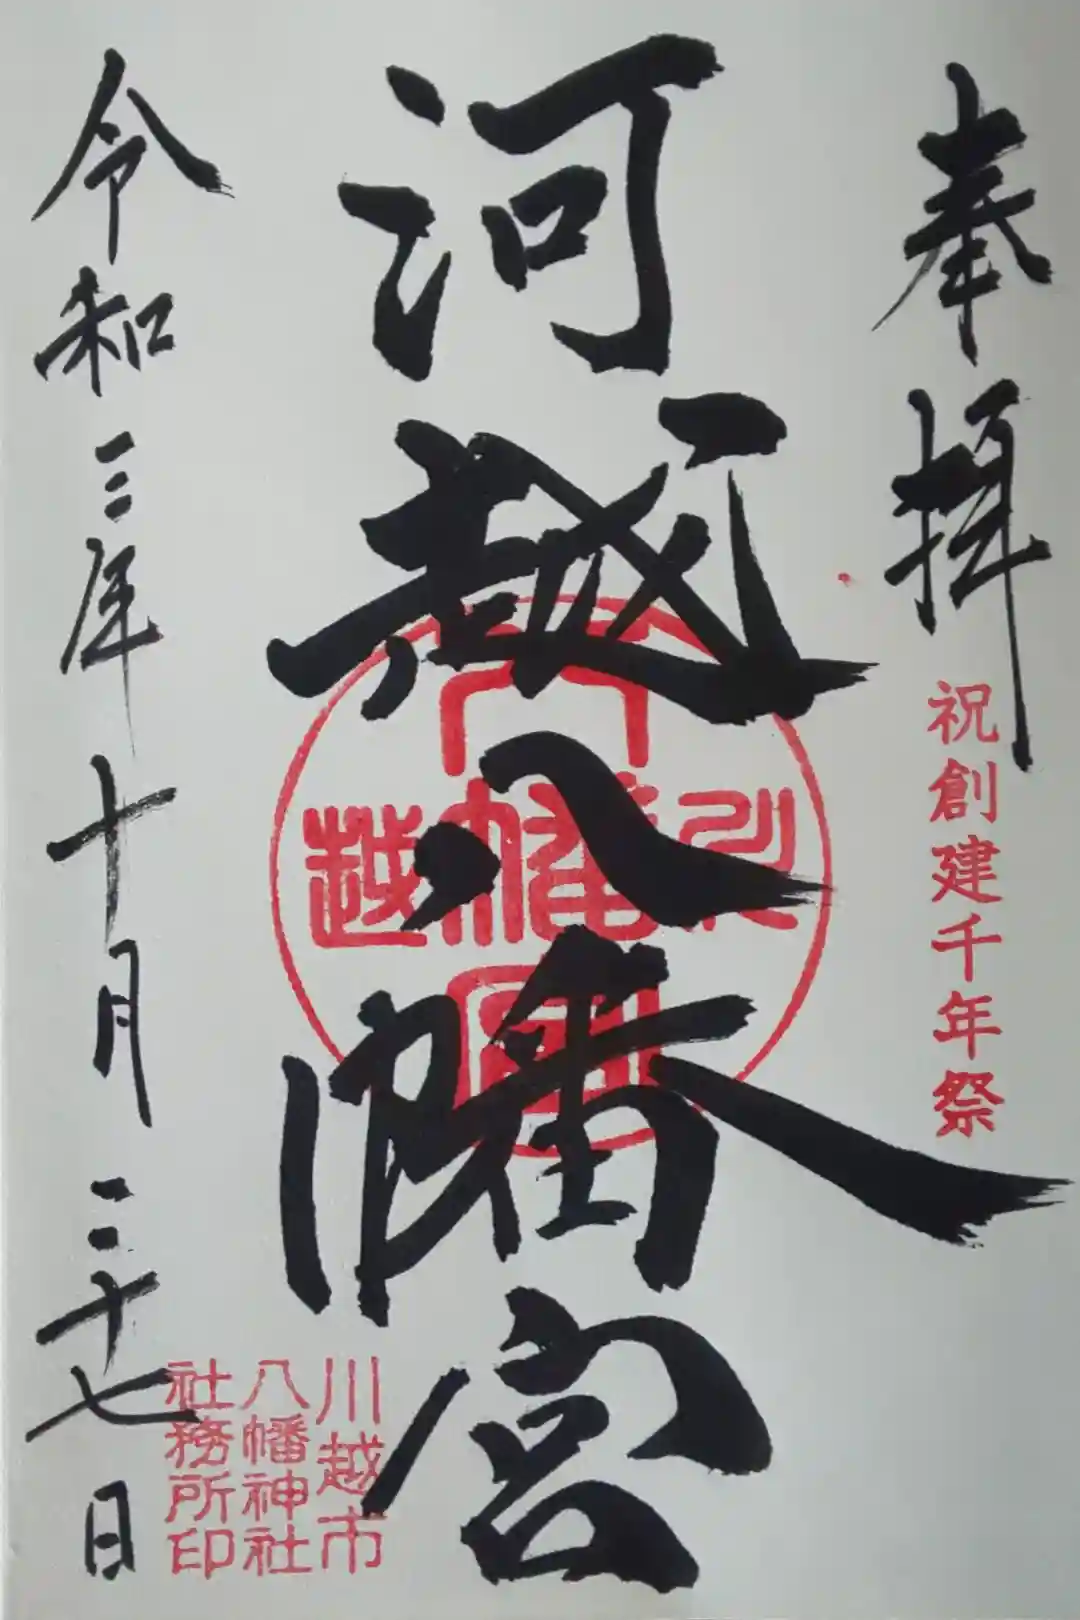 奉拝
祝創建千年祭
河越八幡宮
川越八幡宮
川越市
八幡神社
社務所印
令和三年十月二十七日